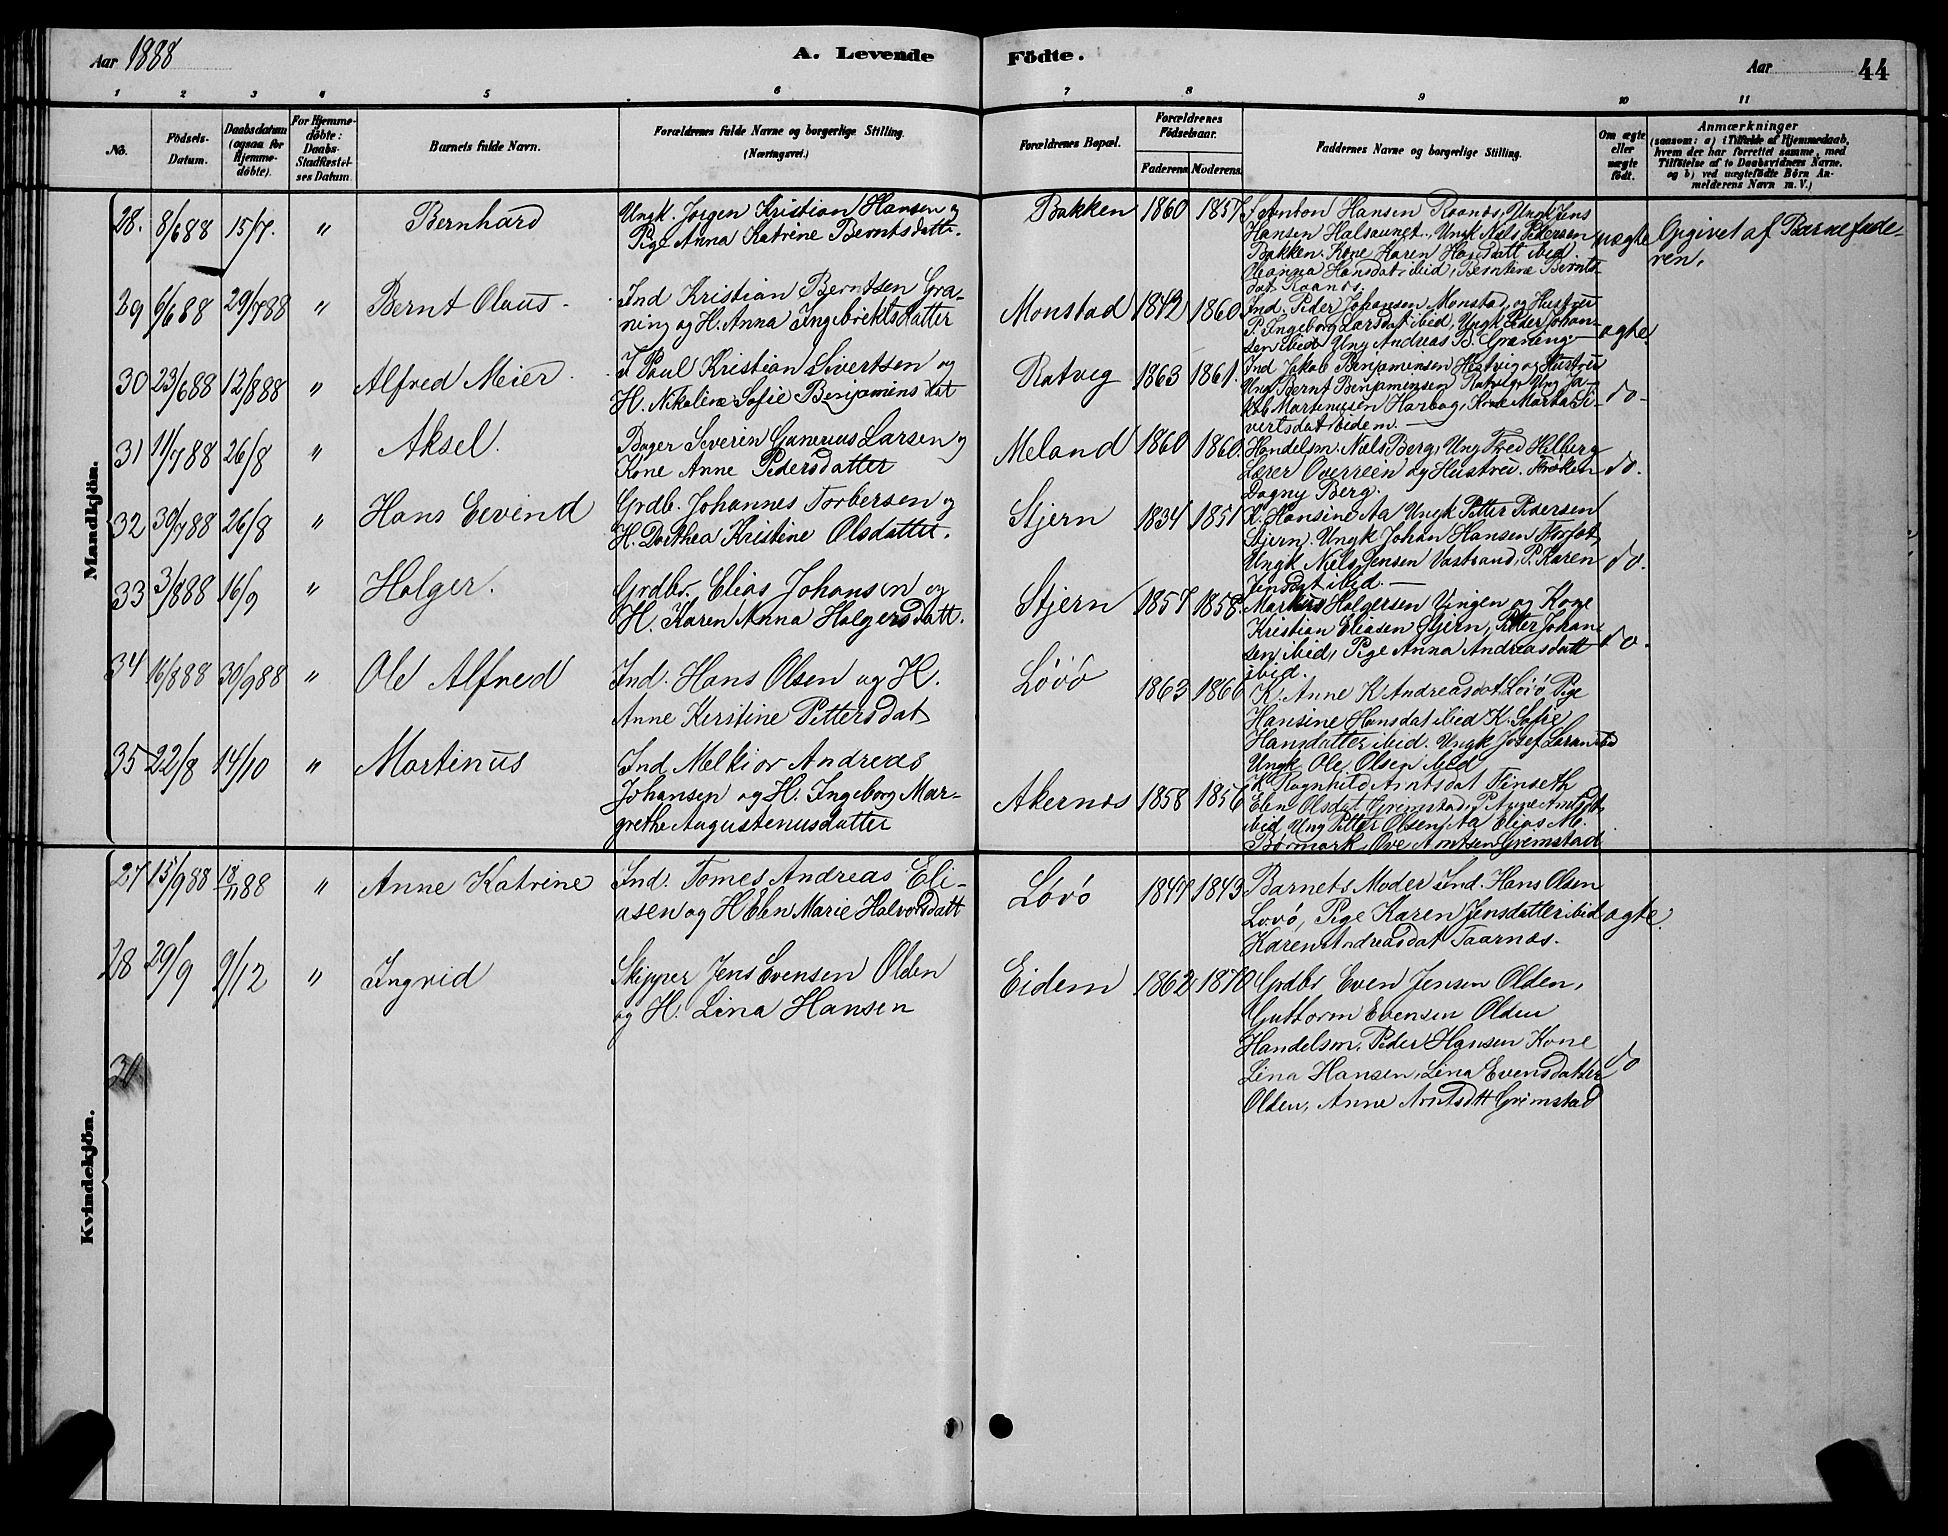 Aar 1888
A. Levende
Födte.
Aar
44
1 2 3 4 5 6 7 8 9 10 11
No.
Födsels-Datum.
Daabsdatum (ogsaa for Hjemmedöbte).
For Hjemmedöbte: Daabs-Stadfæstelses Datum.
Barnets fulde Navn.
Forældrenes fulde Navne og borgerlige Stilling.
(Næringsvei.)
Forældrenes Bopæl.
Forældrenes Födselsaar.
Faderens. Moderens.
Faddernes Navne og borgerlige Stilling.
Om ægte eller uægte födt.
Anmærkninger
(saasom: a) i Tilfælde af Hjemmedaab,
hvem der har forrettet samme, med
Tilföielse af to Daabsvidners Navne,
og b) ved uægtefödte Börn Anmelderens Navn m. V.)
Mandkjön.
28. 8/6 88 15/7. " Bernhard
Ungk. Jørgen Kristian Hansen og
Pige Anna Katrine Berntsdatter.
Bakken 1860 1857
Anton Hansen Raanes, Ungk Jens
Hansen Halsaunet, Ungk Nils Pedersen
Bakken. Kone Karen Hansdatt ibid
Oleanna Hansdat ibid, Berntine Bernts
dat Raanes.
uægte
Opgivet af Barnefade-
ren.
29 6/6 88 29/7 88 " Bernt Olaus
Ind Kristian Berntsen Gra-
ning og H. Anna Ingebriktsdatter
Monstad 1842 1860
Ind. Peder Johansen Monstad og Hustru
P. Ingeborg Larsdat ibid, Ungk Peder Johan-
sen ibid Ung Andreas B. Graning
ægte
30 23/6 88 12/8 88 " Alfred Meier
I Paul Kristian Sivertsen og
H. Nikoline Sofie Benjaminsdat
Ratveg 1863 1861.
Ind Jakob Benjaminsen Ratvig og Hustru
Ung Bernt Benjaminsen Ratvig, Ung Ja-
kob Martinusen Harbog, Kone Marta Si-
vertsdat ibidem.
do
31 11/7 88 26/8 " Aksel.
Bager Severin Gunerius Larsen og
Kone Anne Pedersdatter
Meland 1860 1860.
Handelsm. Niels Berg, Ung Fred Hilberg
Lærer Overreen og Hustru. Frøken
Dagny Berg.
do.
32 30/7 88 26/8 " Hans Eevind
Grdb. Johannes Torbersen og
H. Dorthea Kristine Olsdatter.
Stjern 1834 1851
K. Hansine Aa Ungk Petter Pedersen
Stjern. Ungk Johan Hansen
Ungk Niels Jensen Vastrand, P. Karen
Jensdat ibid.
do.
33 3/8 88 16/9 " Holger.
Grdbr. Elias Johansen og
H. Karen Anna Holgersdatt.
Stjern 1857 1858.
Markus Holgersen Vingen og Kone
Kristian Eliasen Stjern, Petter Johan-
sen ibid, Pige Anna Andreasdatt
ibid.
do.
34 16/8 88 30/9 88 " Ole Alfred
Ind. Hans Olsen og H.
Anne Kerstine Pettersdat
Løvø 1863 1866
K. Anne K Andreasdat Løvø Pige
Hansine Hansdat ibid K. Sofie
Hansdatter ibid. Ungk Josef
Ungk Ole Olsen ibid
35 22/8 14/10 " Martinus
Ind Melkior Andreas
Johansen og H. Ingeborg Mar-
grethe Augustenusdatter
Akernes 1858 1856
K Ragnhild Arntsdat Flinseth
Elen Olsdat Grimstad, P. Anne Arntsdt.
ibid Ung Petter Olsen Aa Elias M.
Børmark, Ove Arntsen Gremstad
Kvindekjön.
27 15/9 88 18/11 88 " Anne Katrine
Ind. Tomes Andreas Eli-
asen og H Elen Marie Halvorsdatt
Løvø 1847 1843
Barnets Moder Ind. Hans Olsen
Løvø, Pige Karen Jensdatter ibid
Karen Andreasdat Taarnes.
ægte.
28 29/9 9/12 " Ingrid
Skipper Jens Evensen Olden
og H. Lina Hansen
Eidem 1862 1870
Grdbr Even Jensen Olden,
Guttorm Evensen Olden
Handelsm. Peder Hansen Kone
Lina Hansen, Lina Evensdatter
Olden, Anne Arntsdtt Grimstad
do